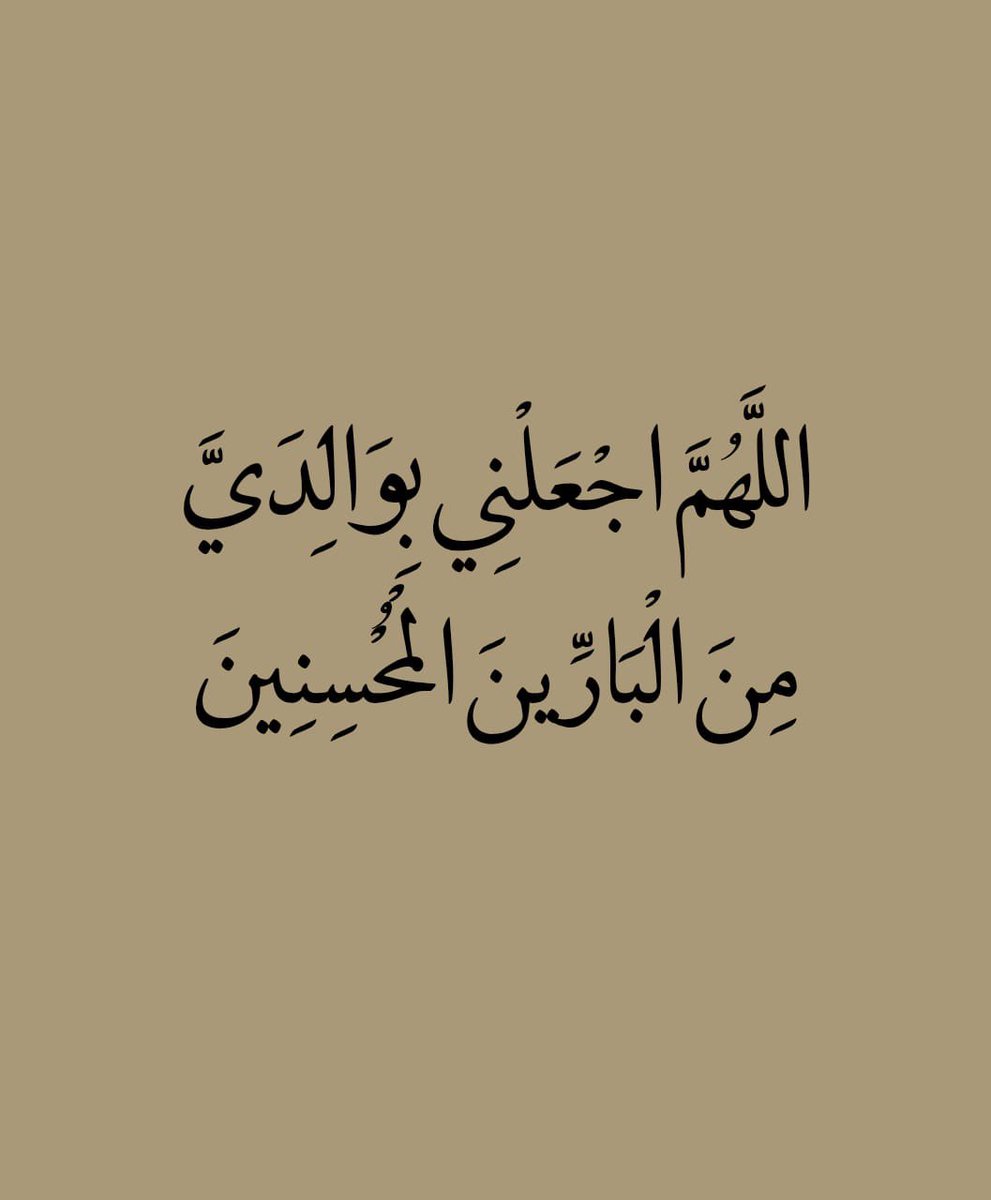 اللَّهُمَّ اجْعَلْنِي بِوَالِدَيَّ
مِنَ الْبَارِّينَ الْمُحْسِنِينَ